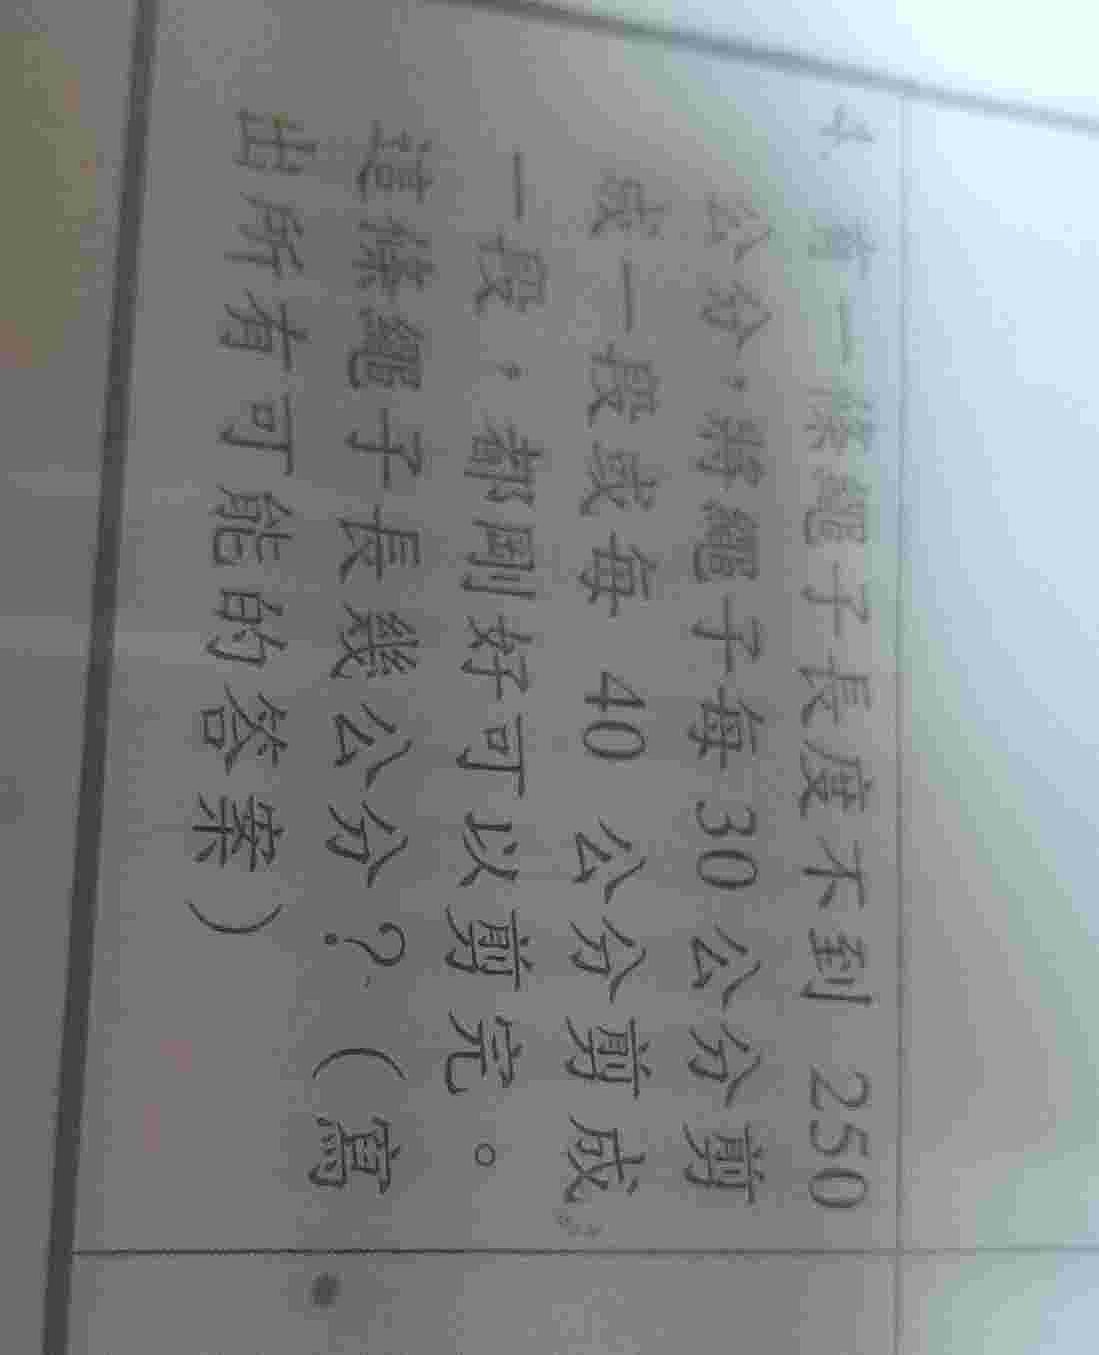 4. 有一條繩子長度不到 250
公分，將繩子每 30 公分剪
成一段或每 40 公分剪成
一段，都剛好可以剪完。
這條繩子長幾公分？（寫
出所有可能的答案）